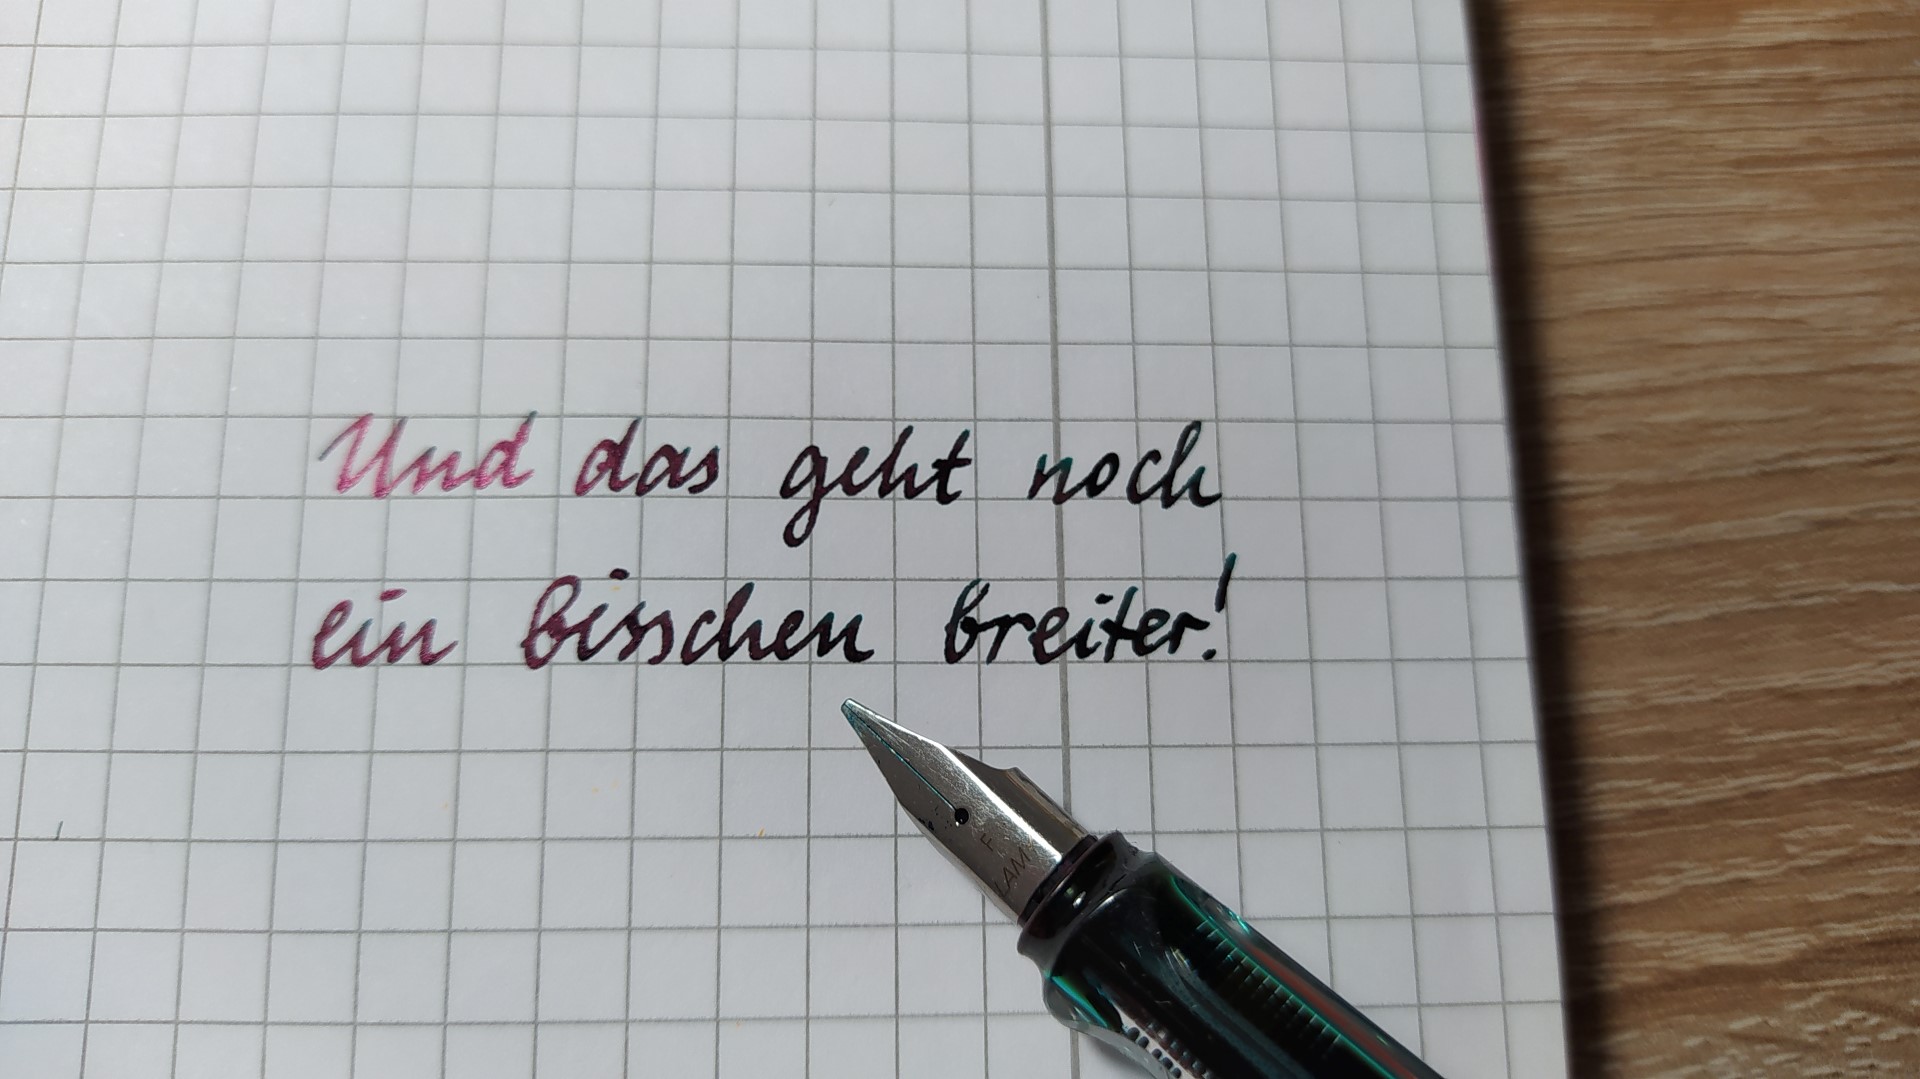 Und das geht noch
ein bisschen breiter!
F
LAM